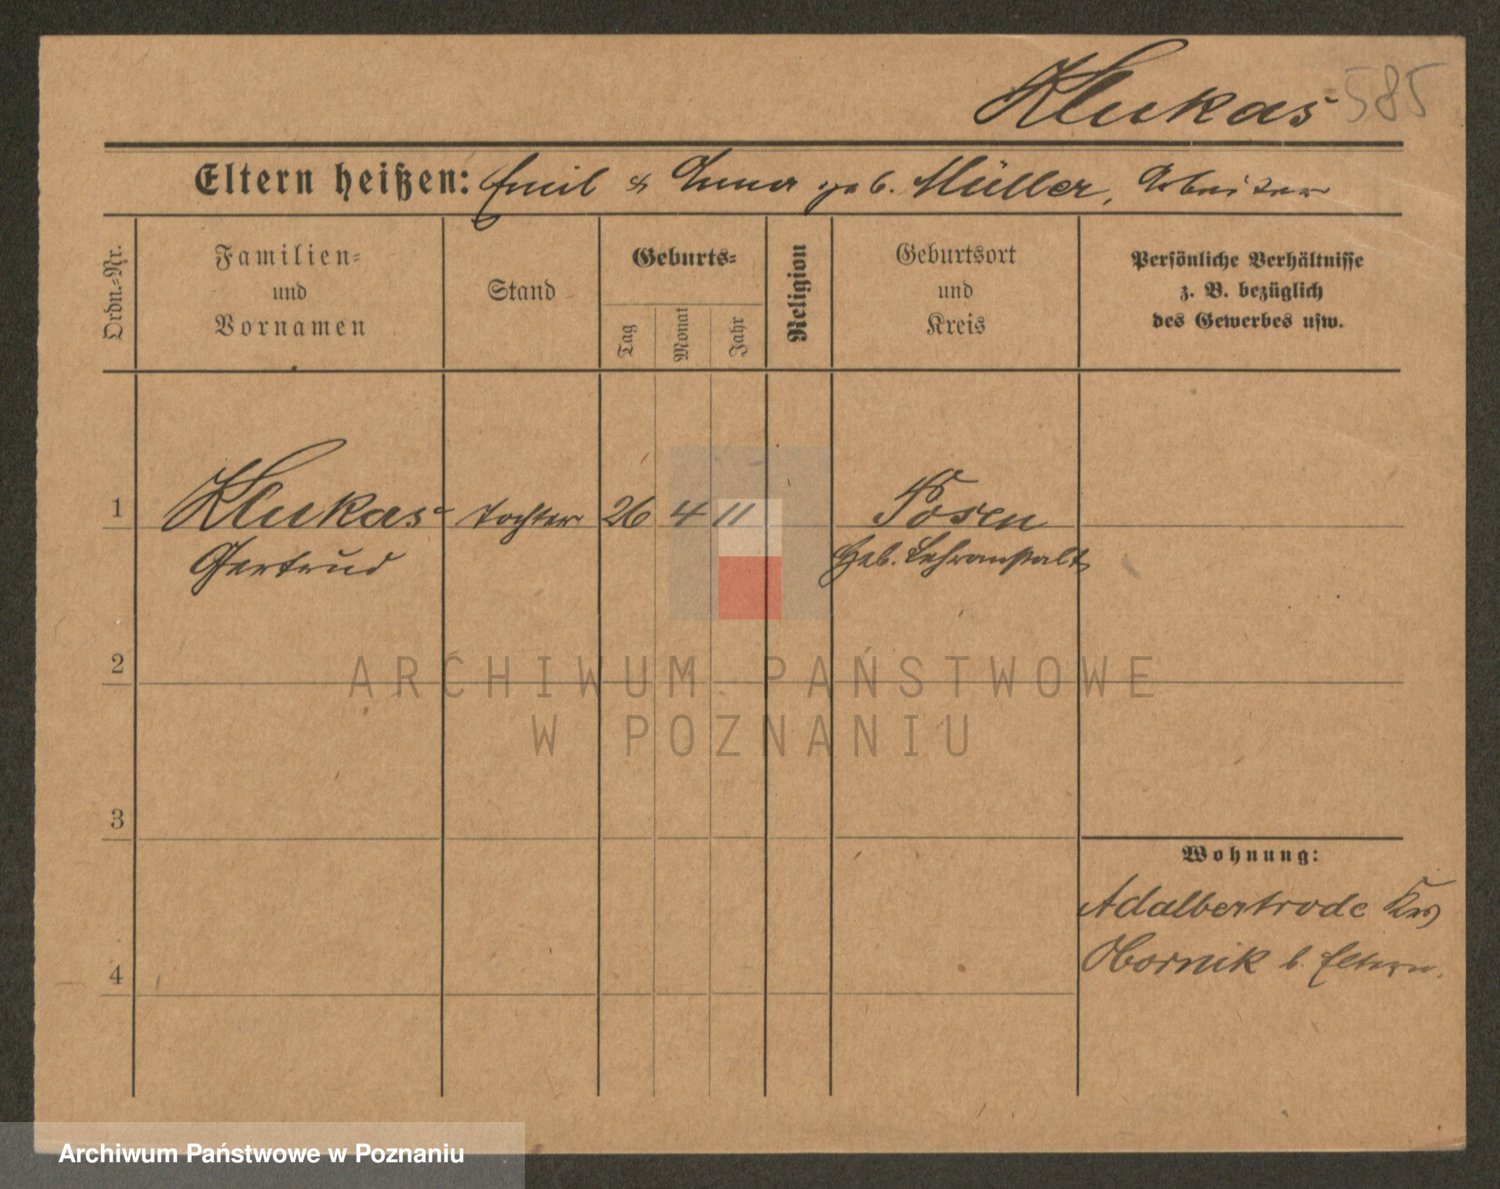 Klukas 585
Eltern heißen: Emil & Anna geb. Müller, Arbeiter
Ordn.-Nr.
Familien-
und
Vornamen
Stand
Geburts-
Tag
Monat
Jahr
Religion
Geburtsort
und
Kreis
Persönliche Verhältnisse
z. B. bezüglich
des Gewerbes usw.
1 Klukas Tochter 26 4 11 Posen
Gertrud Heb. Lehranstalt
ARCHIWUM PAŃSTWOWE
W POZNANIU
2
3
Wohnung:
Adalbertrode Krs
Obornik b. Eltern.
4
Archiwum Państwowe w Poznaniu